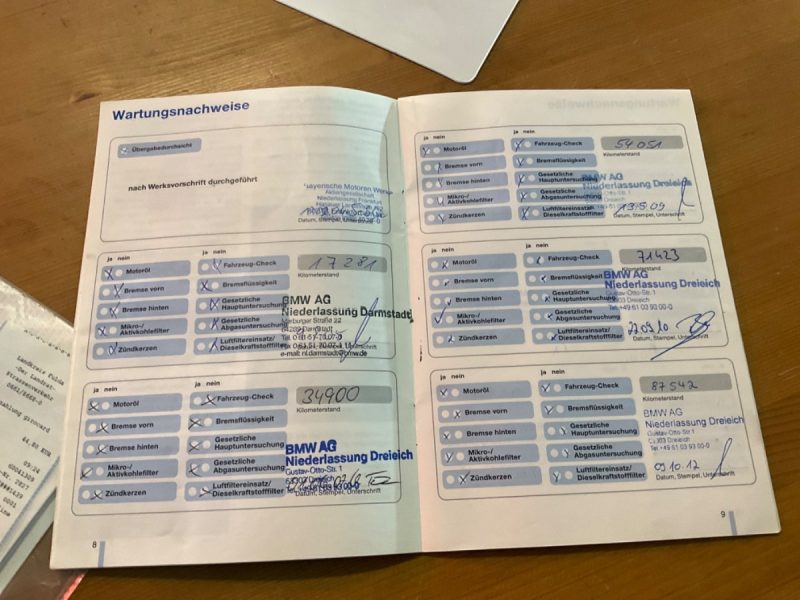 Wartungsnachweise
Übergabedurchsicht
nach Werksvorschrift durchgeführt
Bayerische Motoren Werke
Aktiengesellschaft
Niederlassung Frankfurt
Datum, Stempel, Unterschrift
ja nein
ja nein
Motoröl
Fahrzeug-Check
17281
Kilometerstand
Bremse vorn
Bremsflüssigkeit
Bremse hinten
Gesetzliche
Hauptuntersuchung
Mikro-/
Aktivkohlefilter
Gesetzliche
Abgasuntersuchung
Zündkerzen
Luftfiltereinsatz/
Dieselkraftstofffilter
BMW AG
Niederlassung Darmstadt
Marburger Straße 22
64289 Darmstadt
e-mail: nl.darmstadt@bmw.de
ja nein
ja nein
Motoröl
Fahrzeug-Check
34900
Kilometerstand
Bremse vorn
Bremsflüssigkeit
Bremse hinten
Gesetzliche
Hauptuntersuchung
Mikro-/
Aktivkohlefilter
Gesetzliche
Abgasuntersuchung
Zündkerzen
Luftfiltereinsatz/
Dieselkraftstofffilter
BMW AG
Niederlassung Dreieich
Gustav-Otto-Str. 1
63303 Dreieich
Datum, Stempel, Unterschrift
8
ja nein
ja nein
Motoröl
Fahrzeug-Check
54051
Kilometerstand
Bremse vorn
Bremsflüssigkeit
Bremse hinten
Gesetzliche
Hauptuntersuchung
Mikro-/
Aktivkohlefilter
Gesetzliche
Abgasuntersuchung
Zündkerzen
Luftfiltereinsatz/
Dieselkraftstofffilter
BMW AG
Niederlassung Dreieich
13.5.09
Datum, Stempel, Unterschrift
ja nein
ja nein
Motoröl
Fahrzeug-Check
71423
Kilometerstand
Bremse vorn
Bremsflüssigkeit
Bremse hinten
Gesetzliche
Hauptuntersuchung
Mikro-/
Aktivkohlefilter
Gesetzliche
Abgasuntersuchung
Zündkerzen
Luftfiltereinsatz/
Dieselkraftstofffilter
BMW AG
Niederlassung Dreieich
Gustav-Otto-Str. 1
63303 Dreieich
Tel. +49 61 03 93 00-0
27.09.10
Datum, Stempel, Unterschrift
ja nein
ja nein
Motoröl
Fahrzeug-Check
87542
Kilometerstand
Bremse vorn
Bremsflüssigkeit
Bremse hinten
Gesetzliche
Hauptuntersuchung
Mikro-/
Aktivkohlefilter
Gesetzliche
Abgasuntersuchung
Zündkerzen
Luftfiltereinsatz/
Dieselkraftstofffilter
BMW AG
Niederlassung Dreieich
Gustav-Otto-Str. 1
63303 Dreieich
Tel. +49 61 03 93 00-0
09.10.12
Datum, Stempel, Unterschrift
9
Landkreis Fulda
-Der Landrat-
Strassenverkehr